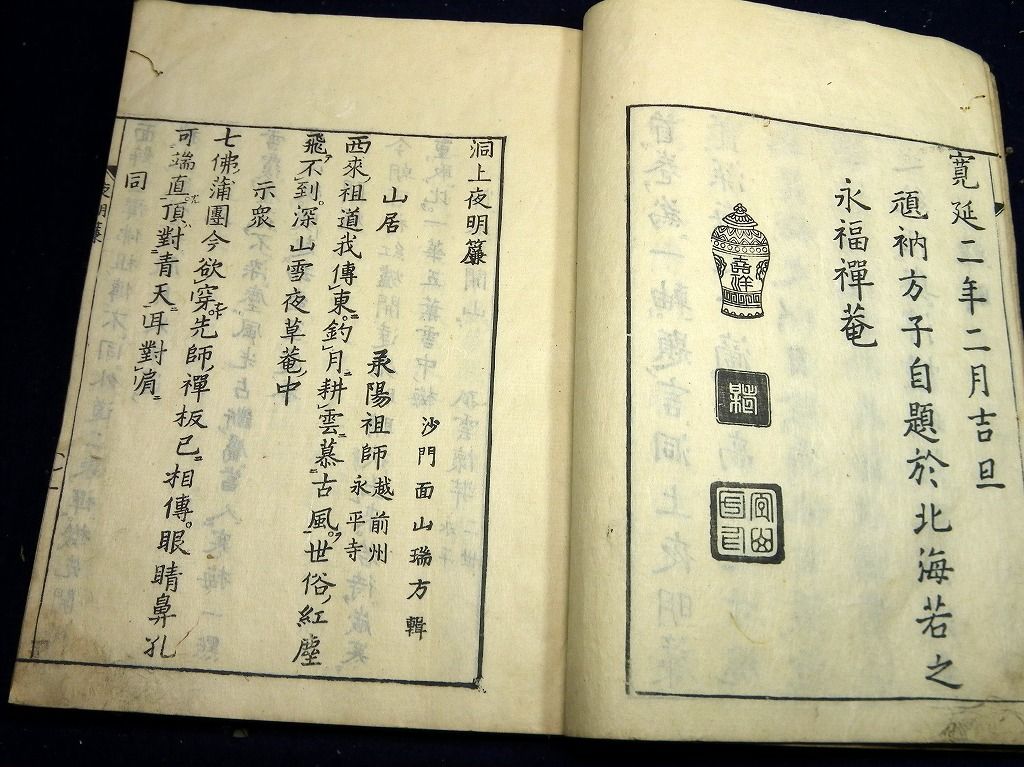 寬延二年二月吉旦
頑衲方子自題於北海若之
永福禪菴
嘉祥
洞上夜明簾
沙門面山瑞方輯
山居　承陽祖師越前州永平寺
西來祖道我傳東。釣月耕雲慕古風。世俗紅塵
飛不到。深山雪夜草菴中
示衆
七佛蒲團今欲穿先師禪板已相傳。眼睛鼻孔
可端直頂對青天耳對肩
同
夜明簾